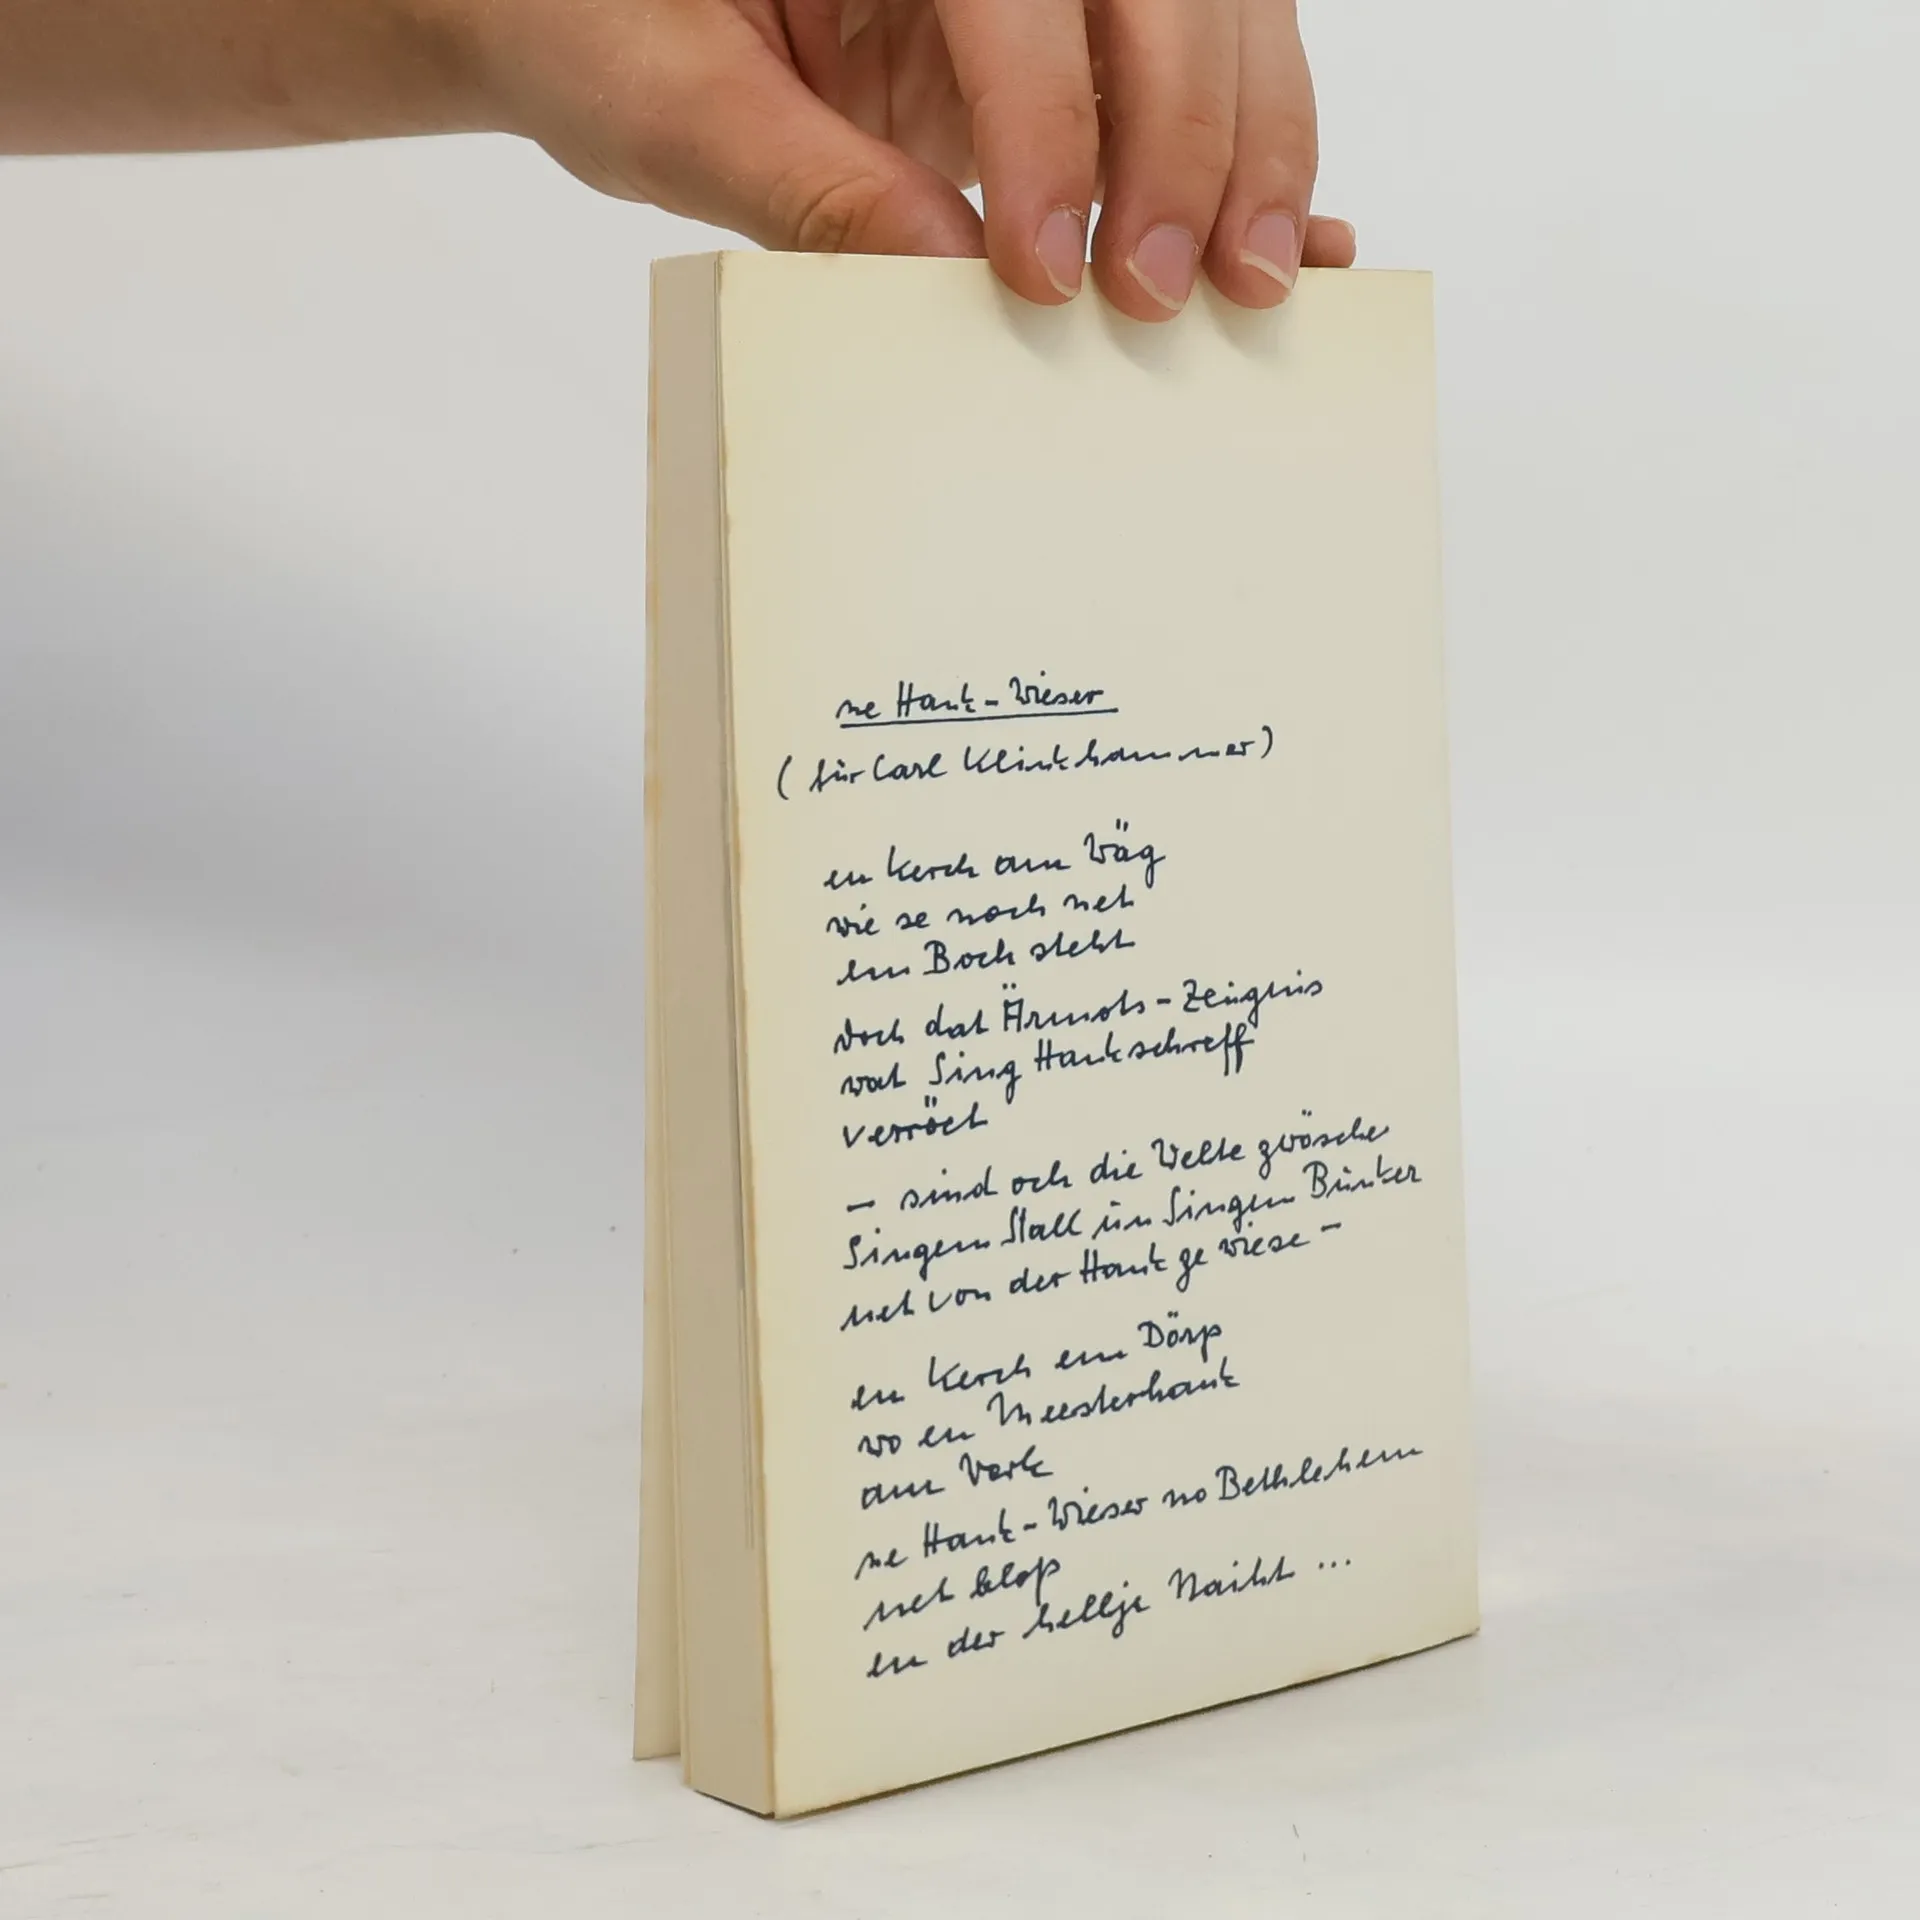 ne Hank-Wieser
(für Carl Klinkhammer)
en Kerch am Wäg
wie se noch net
em Boch steht
doch dat Ärmots-Zeugnis
wat Sing Hankschreff
verröet
- sind och die Welte zwösche
Singem Stall un Singem Bunker
net von der Hank ze wiese -
en Kerch em Dörp
wo en Meesterhank
am Werk
ne Hank-Wieser no Bethlehem
net bloß
en der hellje Naiht ...